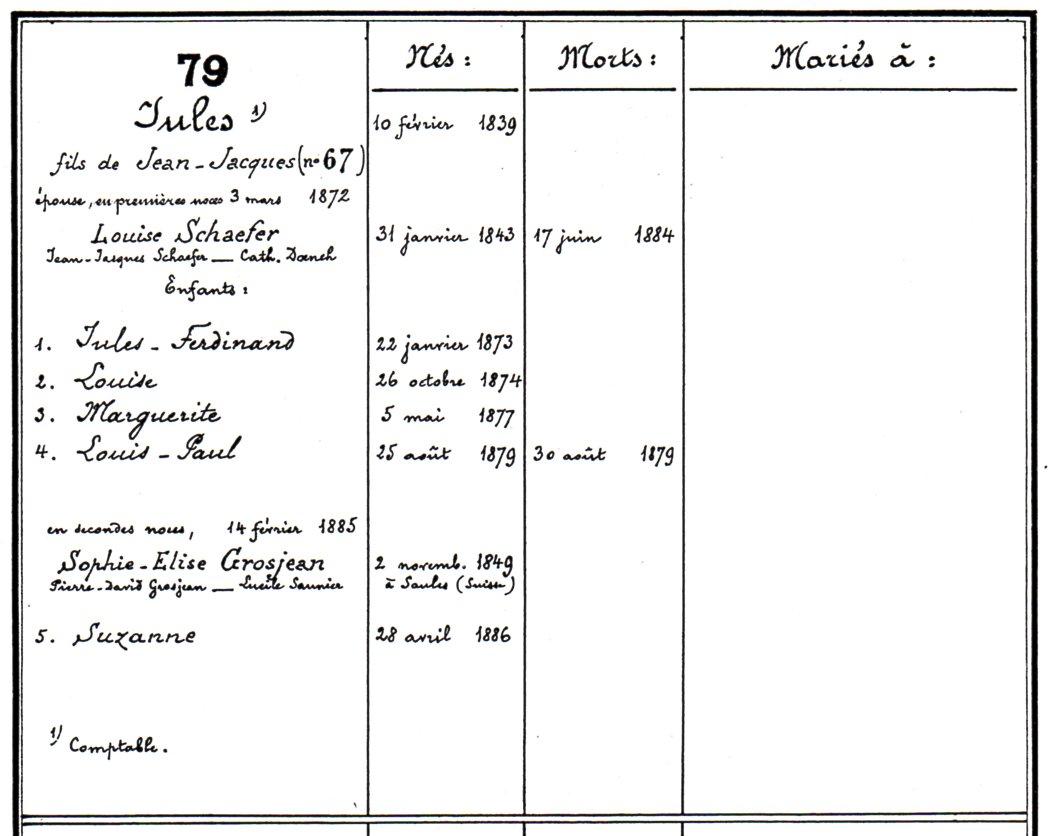 79
Nés :
Morts :
Mariés à :
Jules 1)
10 février 1839
fils de Jean-Jacques (no 67)
épouse, en premières noces 3 mars 1872
Louise Schaefer
31 janvier 1843
17 juin 1884
Jean-Jacques Schaefer — Cath. Dœnch
Enfants :
1. Jules-Ferdinand
22 janvier 1873
2. Louise
26 octobre 1874
3. Marguerite
5 mai 1877
4. Louis-Paul
25 août 1879
30 août 1879
en secondes noces, 14 février 1885
Sophie-Elise Grosjean
2 novemb. 1849
Pierre-David Grosjean — Lucile Saunier
à Saules (Suisse)
5. Suzanne
28 avril 1886
1) Comptable.